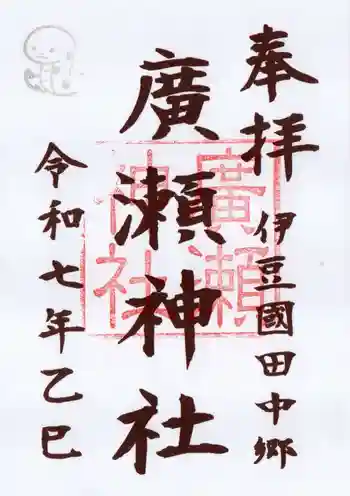 奉拝 伊豆國田中郷
廣瀬神社
廣瀬神社
令和七年乙巳